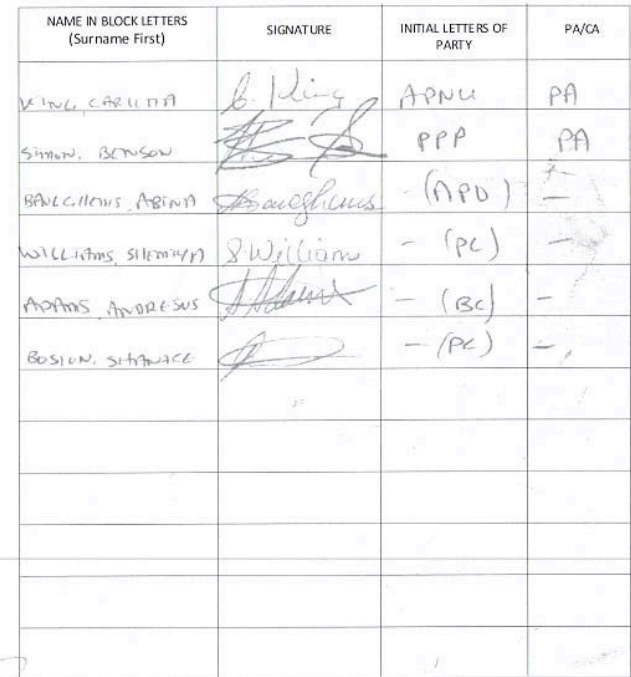 NAME IN BLOCK LETTERS (Surname First) SIGNATURE INITIAL LETTERS OF PARTY PA/CA
KING, CARLITTA G. King APNU PA
SIMON, BENSON PPP PA
ABINA (APO) –
WILLIAMS, S. William – (PC) –
ADAMS, ANDRESUS – (BC) –
BOSTON, SHANACE – (PC) –